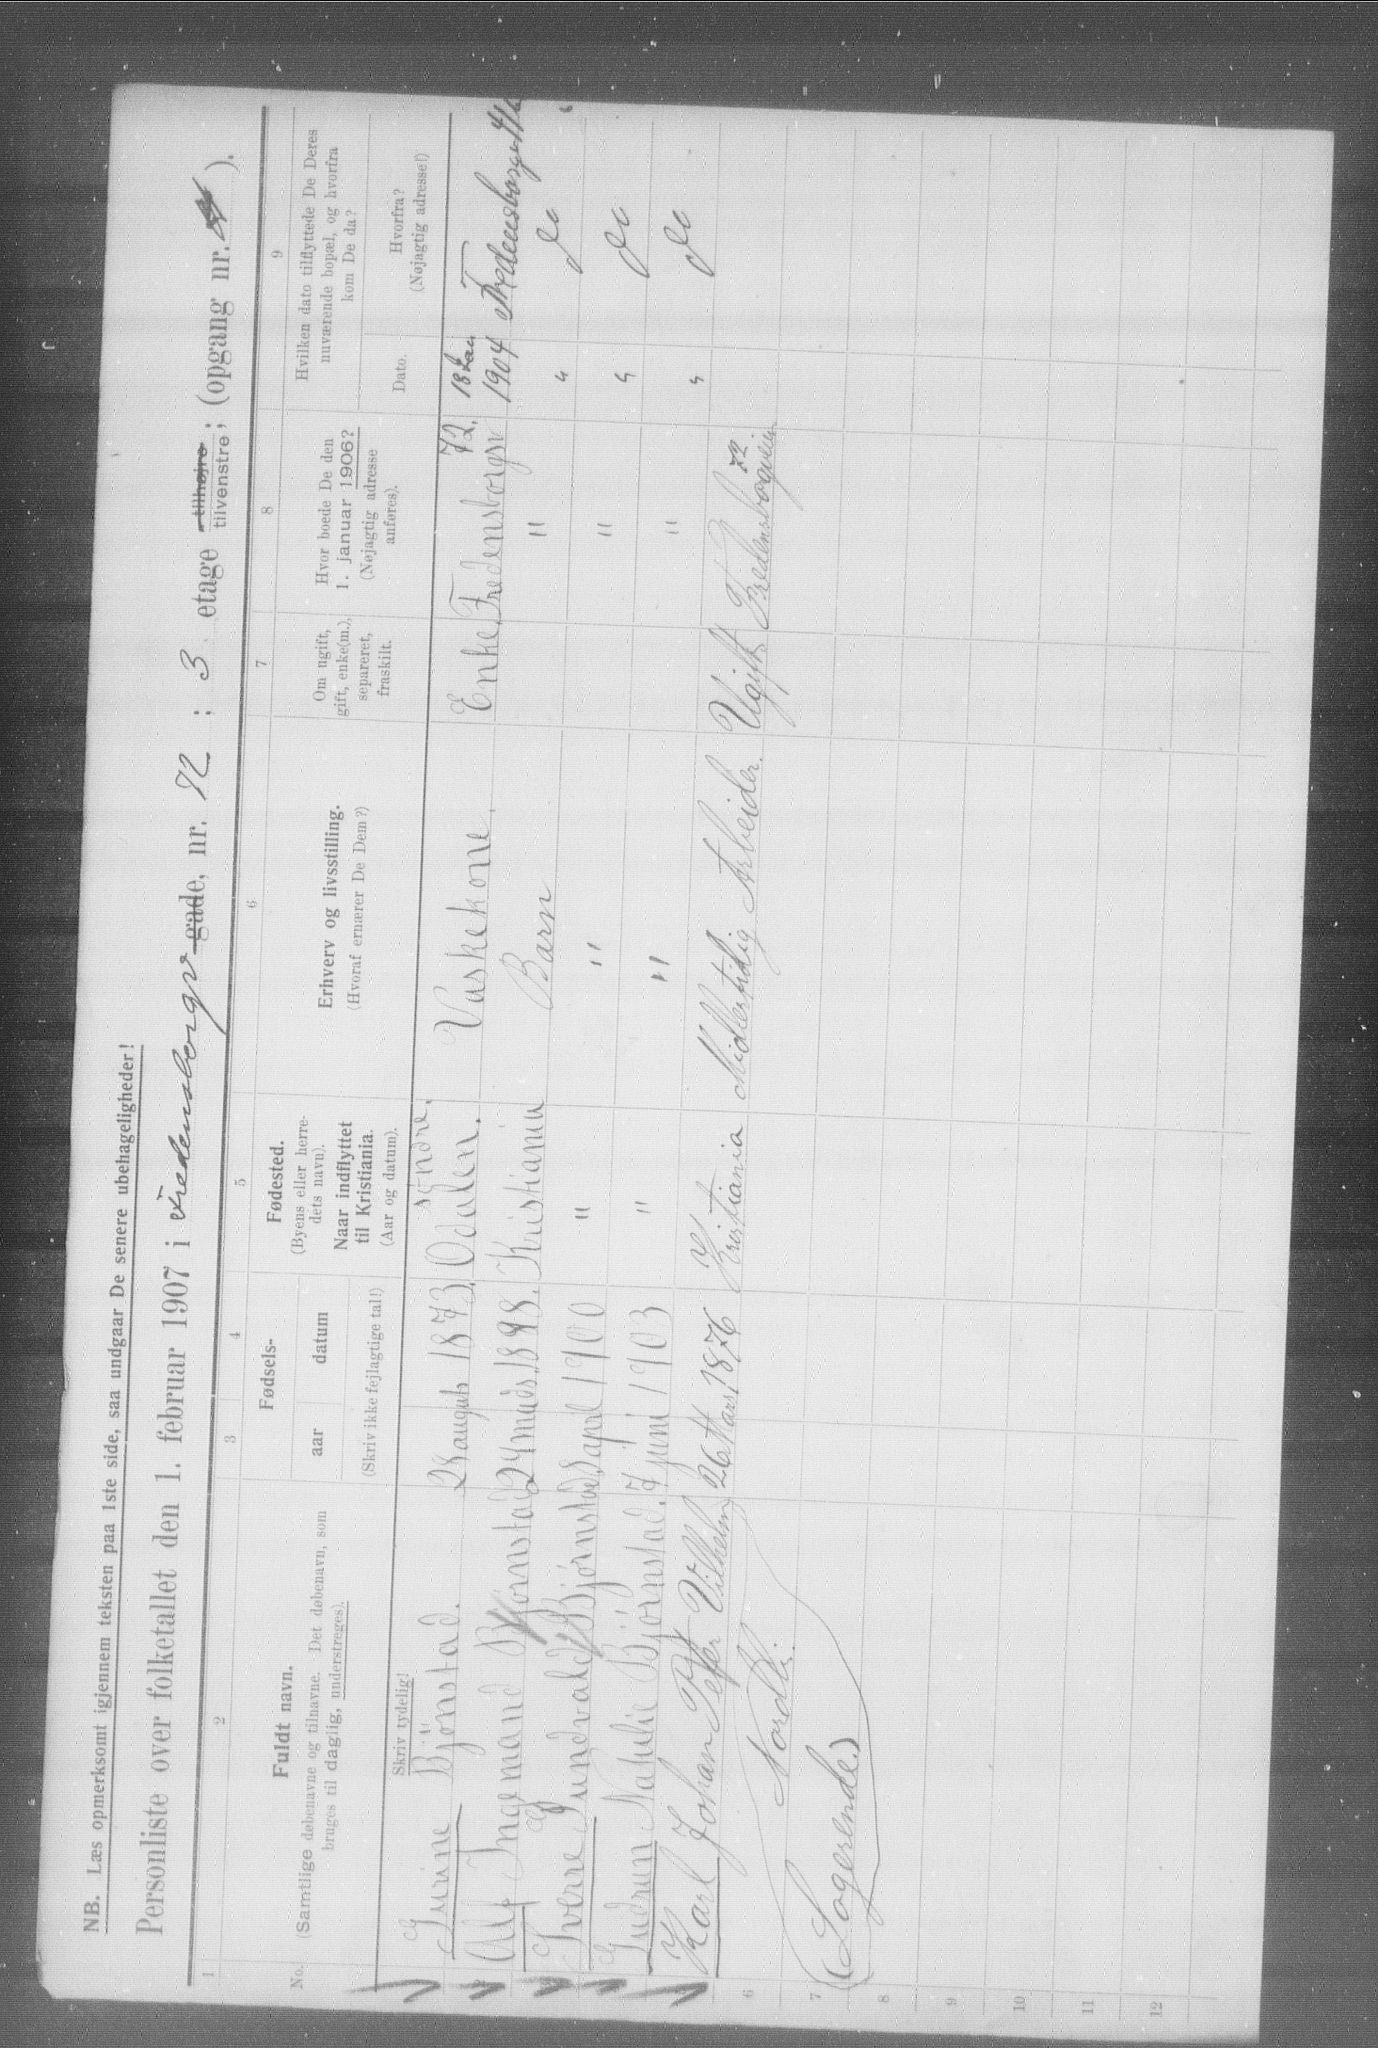 NB. Læs opmerksomt igjennem teksten paa 1ste side, saa undgaar De senere ubehageligheder!
Personliste over folketallet den 1. februar 1907 i Fredensborgv gade, nr. 72 ; 3 etage tilhøjre tilvenstre ; (opgang nr. ).
1 2 3 4 5 6 7 8 9
No.
Fuldt navn.
(Samtlige døbenavne og tilnavne. Det døbenavn, som
bruges til daglig, understreges).
Skriv tydelig!
Fødsels-
aar datum
(Skriv ikke fejlagtige tal!)
Fødested.
(Byens eller herre-
dets navn).
Naar indflyttet
til Kristiania.
(Aar og datum).
Erhverv og livsstilling.
(Hvoraf ernærer De Dem?)
Om ugift,
gift, enke(m.),
separeret,
fraskilt.
Hvor boede De den
1. januar 1906?
(Nøjagtig adresse
anføres).
Hvilken dato tilflyttede De Deres
nuværende bopæl, og hvorfra
kom De da?
Dato.
Hvorfra?
(Nøjagtig adresse!)
Søndre. 72.
Gurine Bjönstad. 28 august 1873. Odalen. Vaskekone. Enke. Fredensborgv 1904 Fredensborgv
Alf Ingemand Bjørnstad 24 1898. Kristiania Barn " " do
Sverre Gundvald Bjørnstad 8 april 1900 " " " " do
Gudrun Natalie Björnstad. 7 juni 1903 " " " " do
Karl Johan Peter Vilhelm 26 Mars 1876 Kristiania Midlertidig Arbeider. Ugift Fredensborgveien 72
6 Nordli.
7 (Logerende.)
8
9
10
11
12